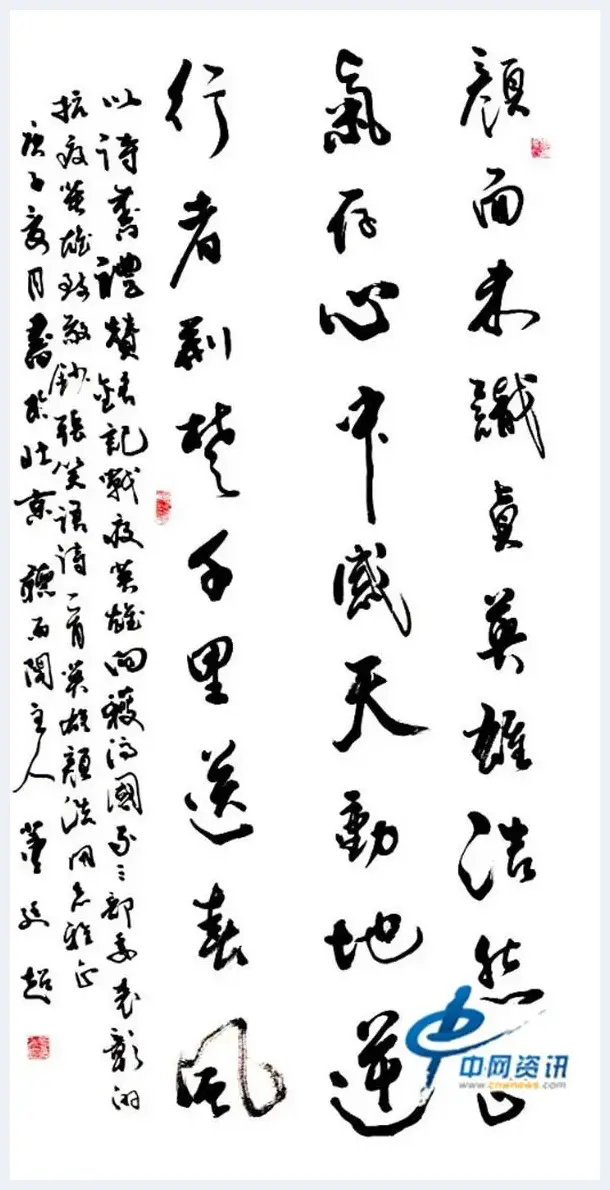 顏面未識真英雄浩然
氣存心中感天動地逆
行者荆楚千里送春風
以詩書禮贊銘記戰疫英雄向獲得國家三部委表彰的
抗疫英雄致敬鈔張笑語詩一首英雄顏浩用兄雅正
庚子夏月書於北京聽雨閣主人
中网资讯
www.cnwnews.com